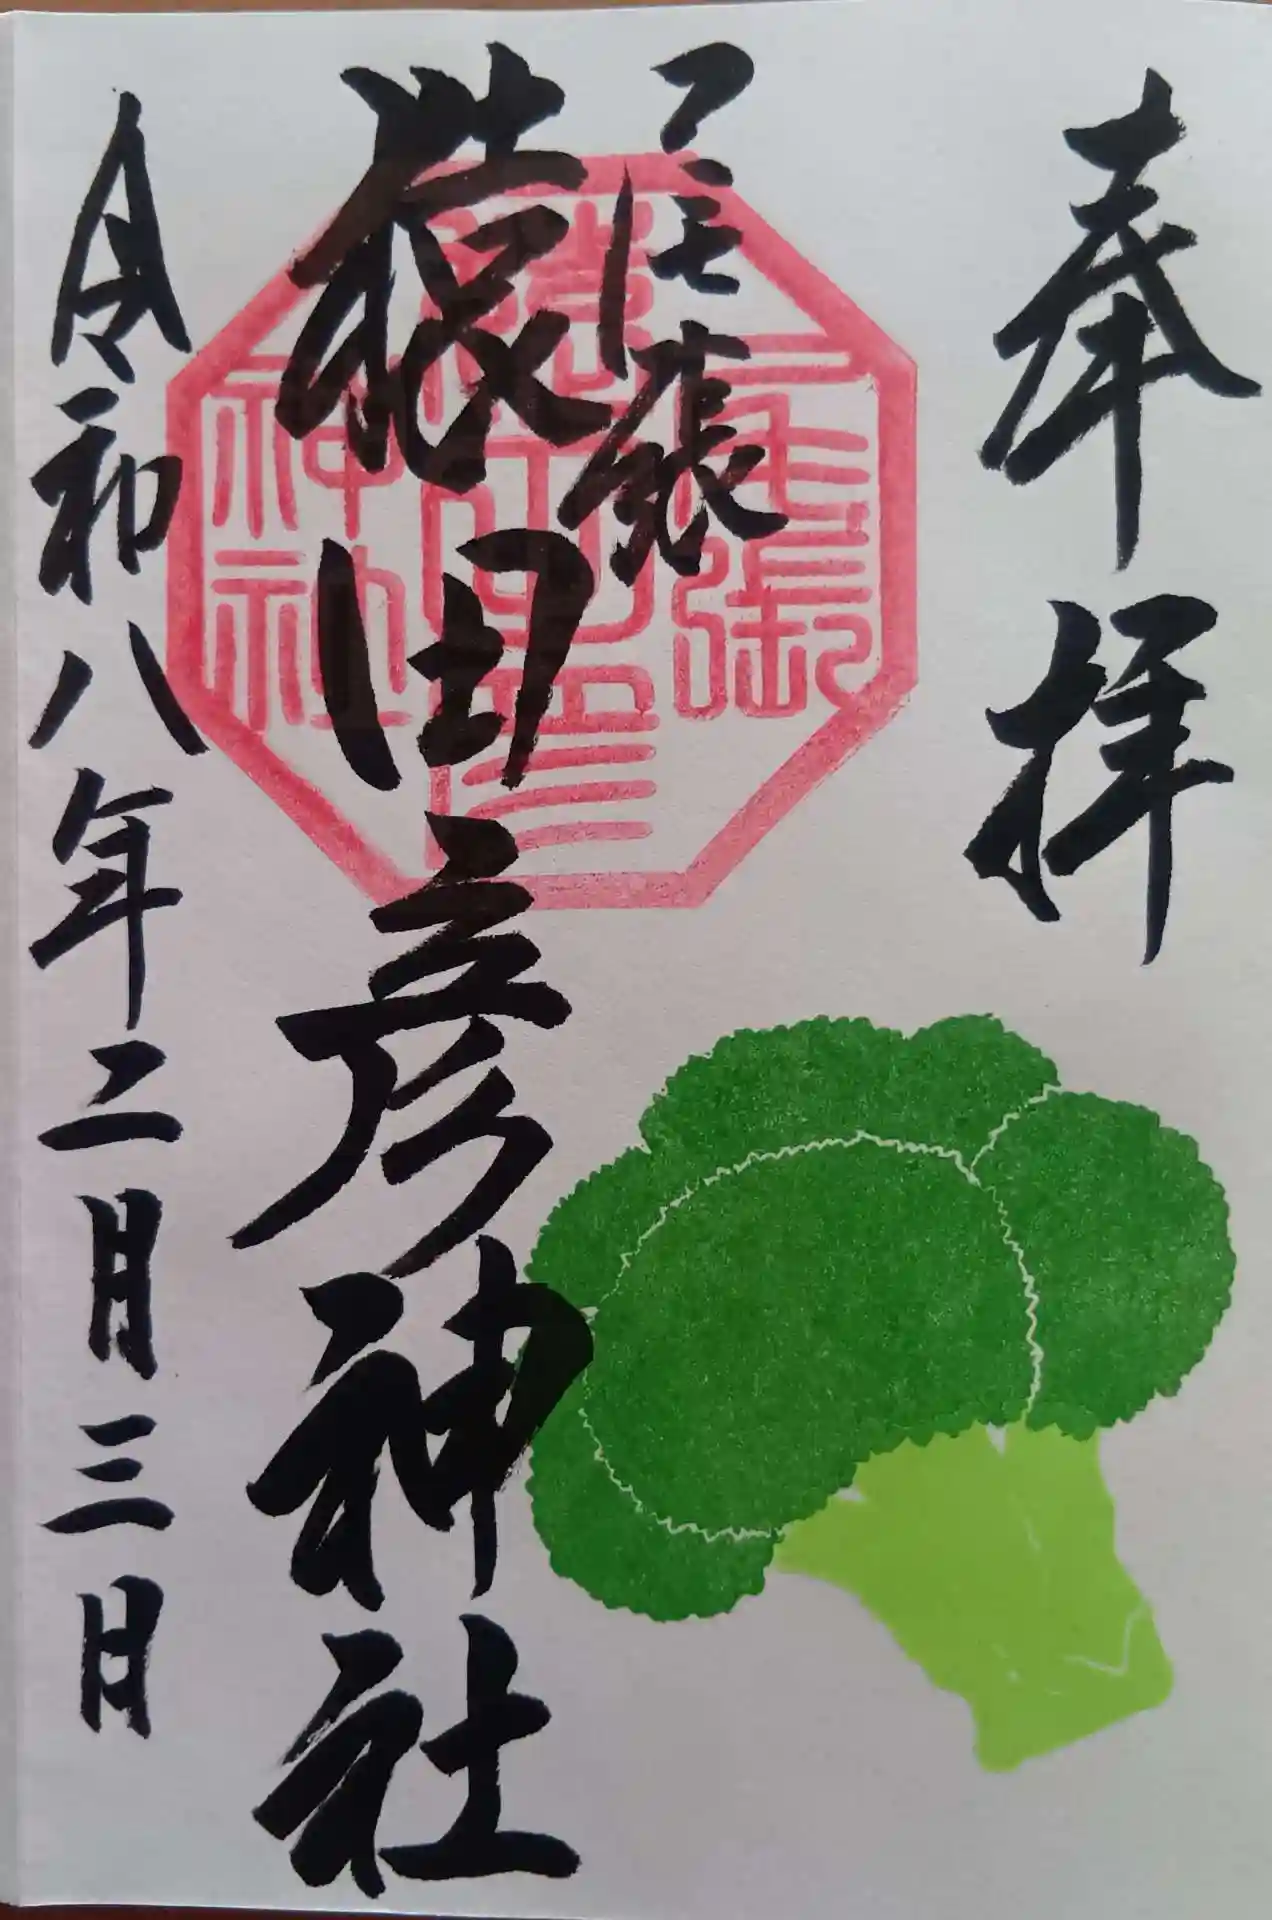 奉拝
尾張
猿田彦神社
令和八年二月三日
尾張
猿田彦
神社